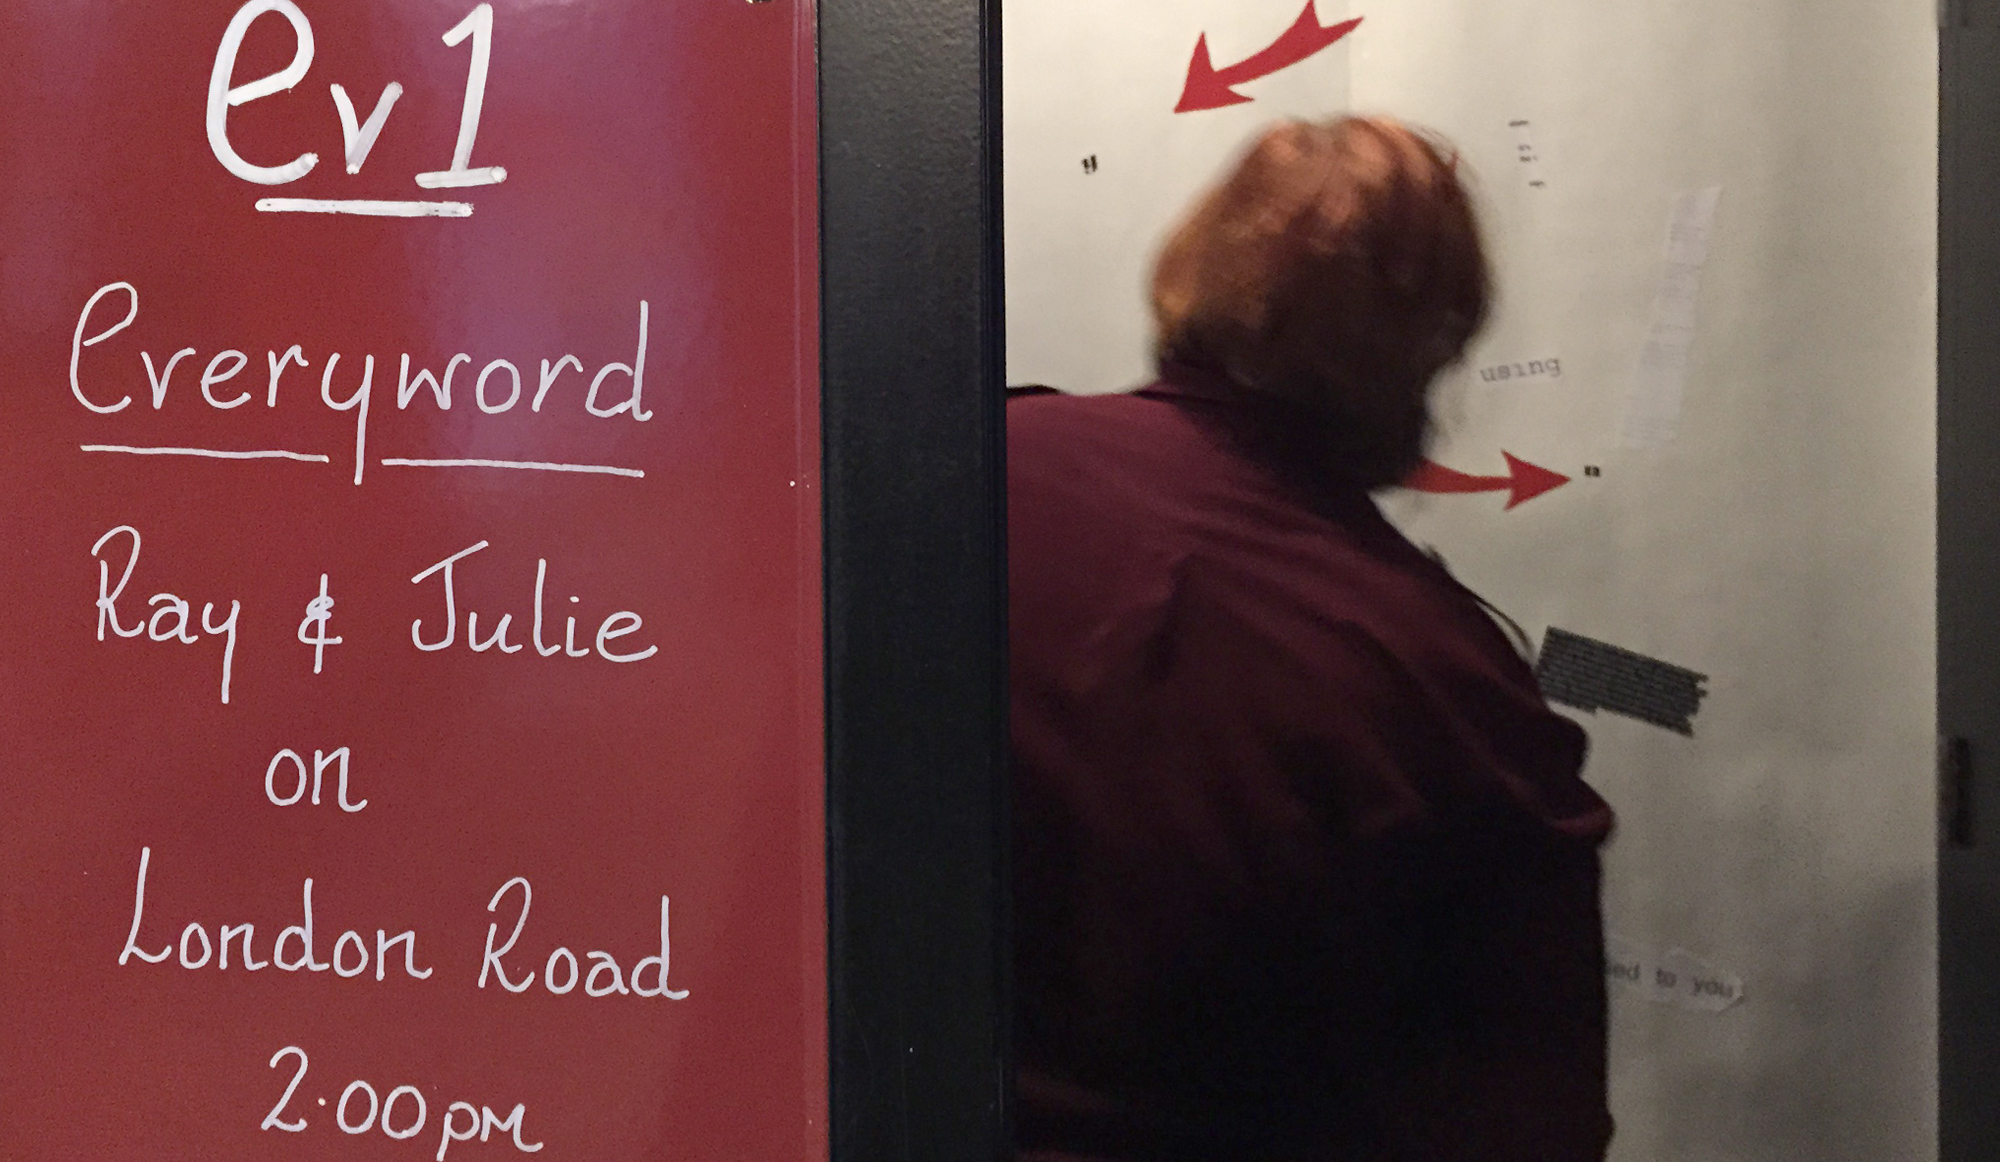 ev1
everyword
Ray & Julie
on
London Road
2.00pm
y
using
to you